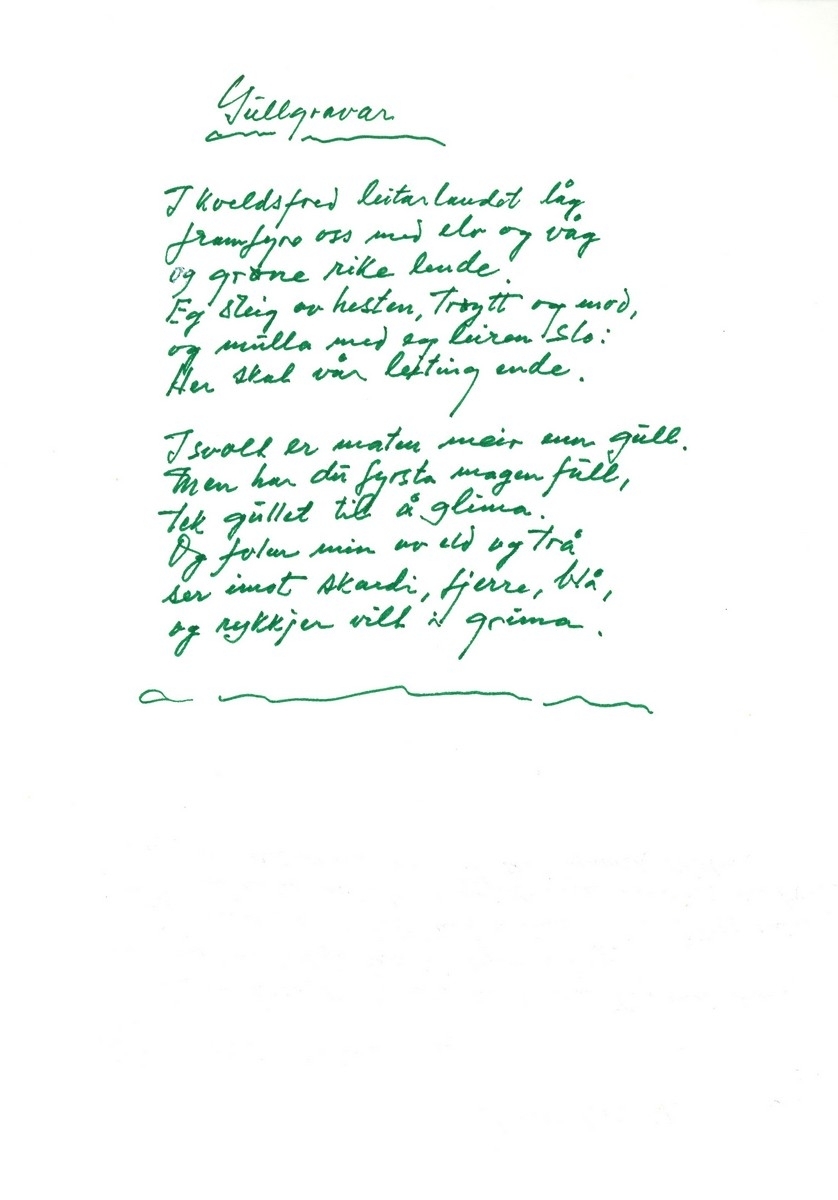 Gullgravar
I kveldsfred leitarlandet låg
framfyre oss med elv og våg
og grøne rike lende.
Eg steig av hesten, trøytt og mod,
og mulla med eg leiren slo:
Her skal vår leiting ende.
I svolt er maten meir enn gull.
Men har du fyrsta magen full,
tek gullet til å glima.
Og folen min av eld og trå
ser imot skardi, fjerre, blå,
og rykkjer vilt i grima.